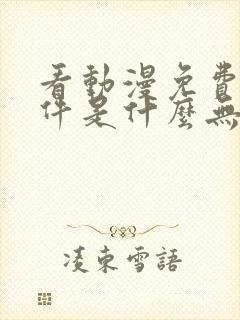 看動漫免費
件是什麼無
凌東雪語